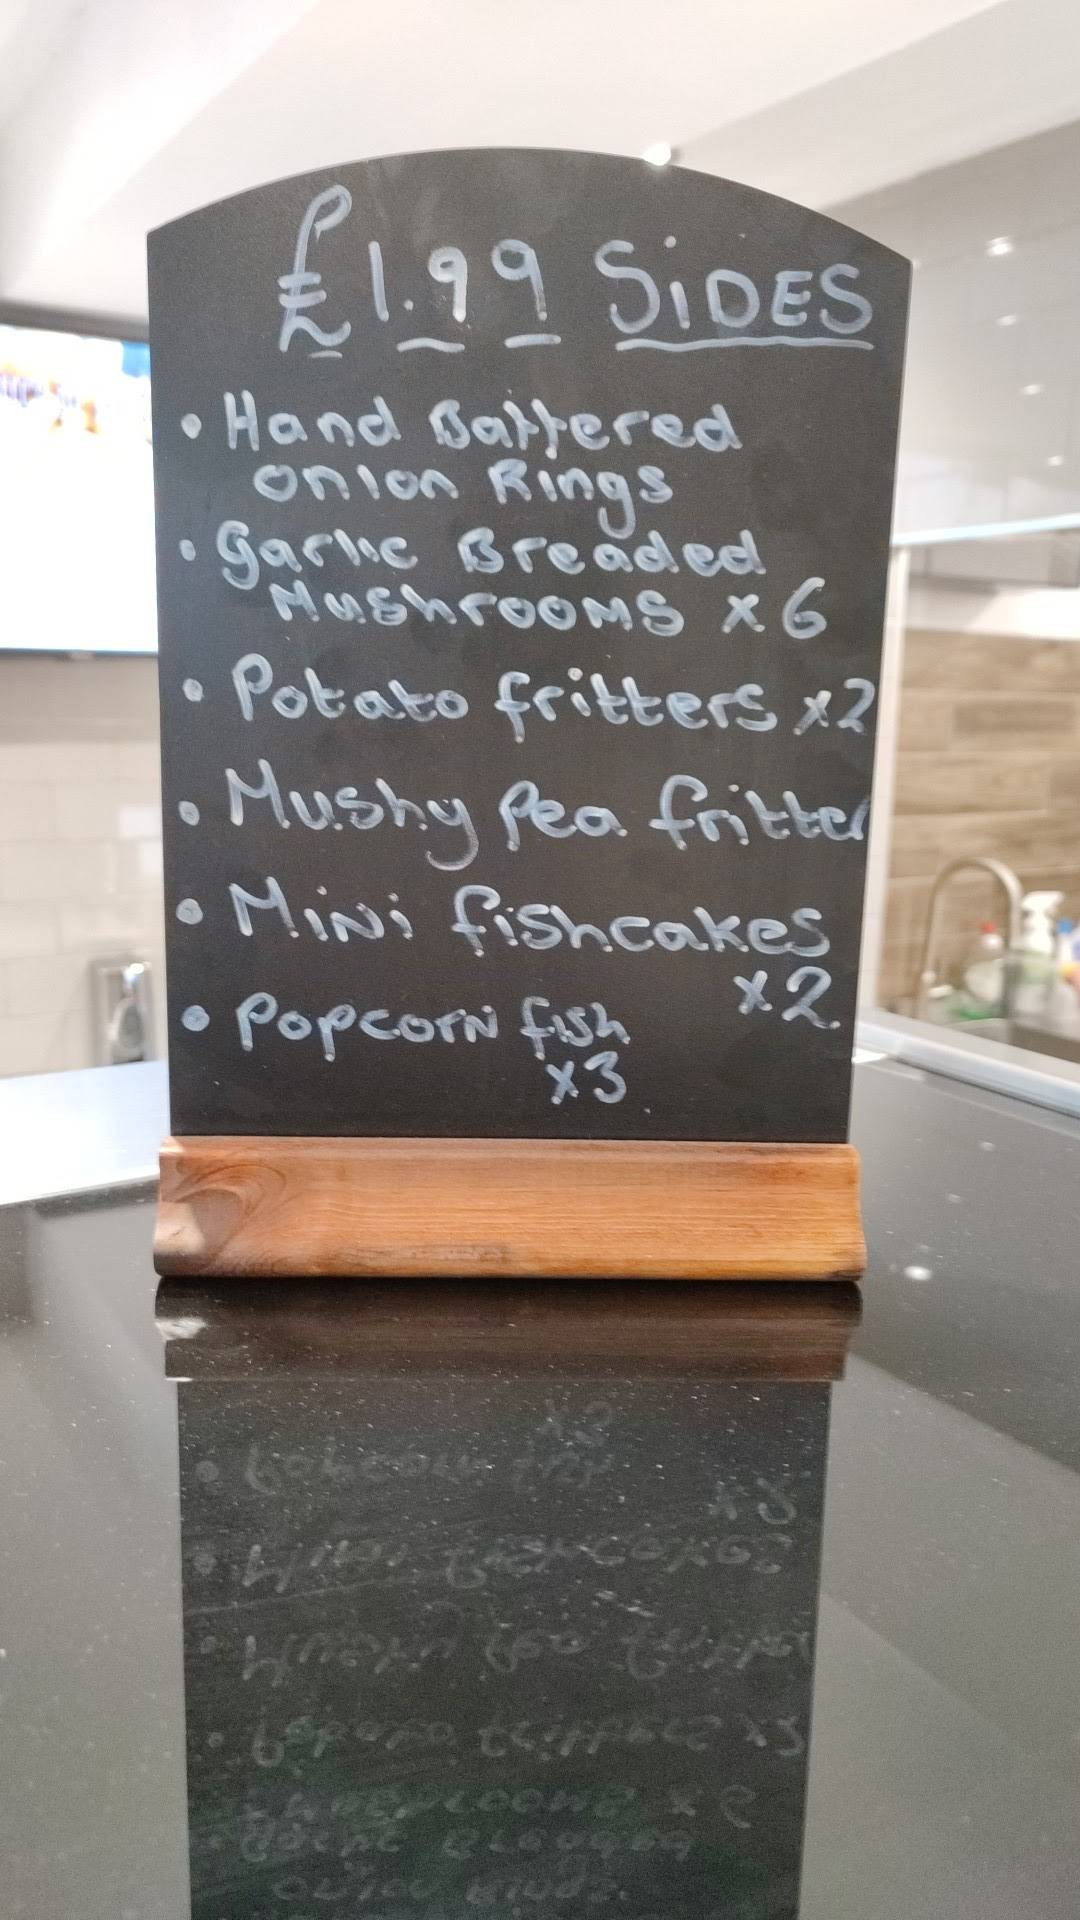 £1.99 SiDES
• Hand Battered
onion Rings
• Garlic Breaded
Mushrooms x 6
• Potato fritters x2
• Mushy Pea fritter
• Mini fishcakes
x2
• Popcorn fish
x3